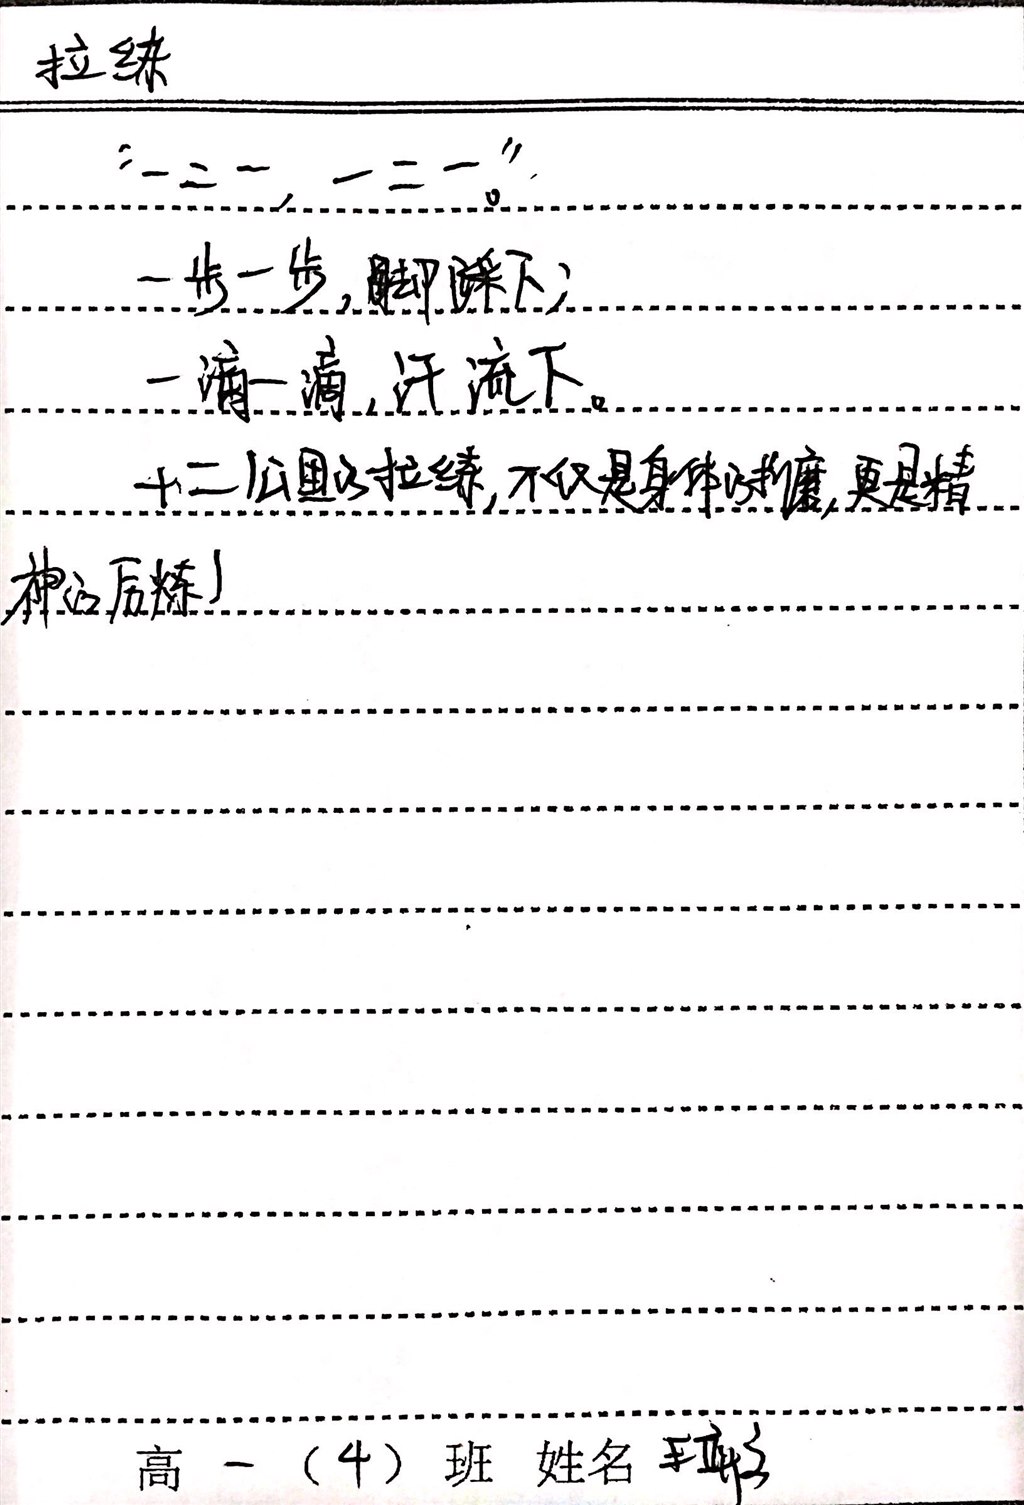 拉练
“一二一，一二一。”
一步一步，脚踩下；
一滴一滴，汗流下。
十二公里的拉练，不仅是身体的折磨，更是精
神的历炼！
高一（4）班 姓名 王